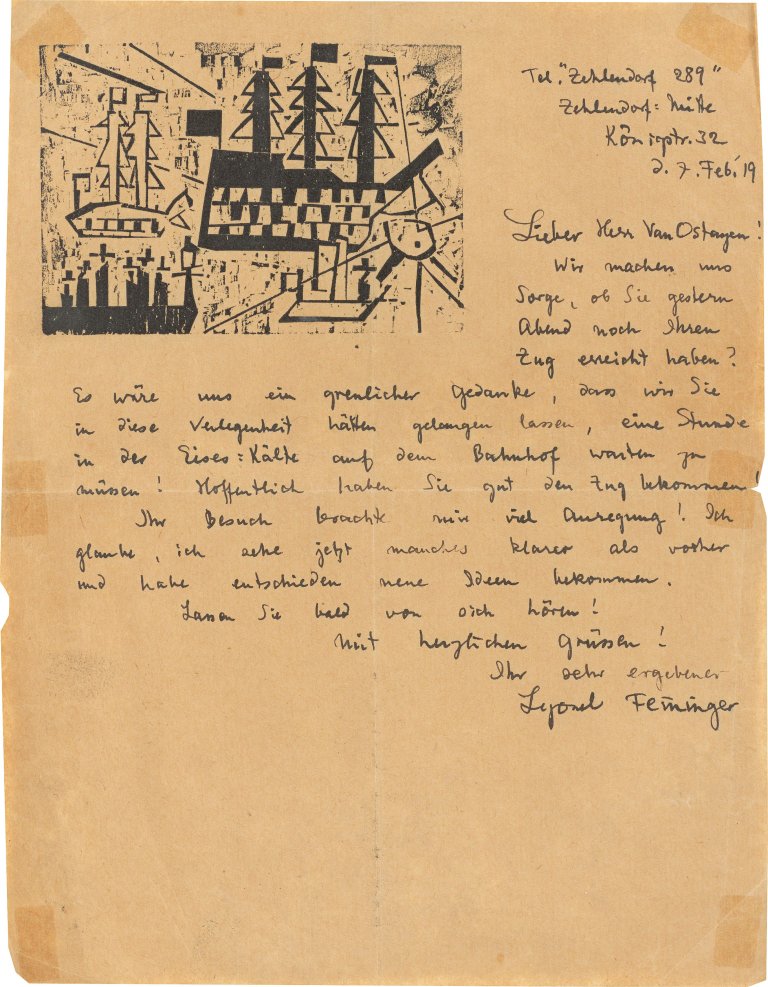 Tel. "Zehlendorf 289"
Zehlendorf=Mitte
Königstr. 32
d. 7. Feb. 19
Lieber Herr Van Ostayen!
Wir machen uns
Sorge, ob Sie gestern
Abend noch Ihren
Zug erreicht haben?
Es wäre uns ein greulicher Gedanke, dass wir Sie
in diese Verlegenheit hätten gelangen lassen, eine Stunde
in der Eises=Kälte auf dem Bahnhof warten zu
müssen! Hoffentlich haben Sie gut den Zug bekommen!
Ihr Besuch brachte mir viel Anregung! Ich
glaube, ich sehe jetzt manches klarer als vorher
und habe entschieden neue Ideen bekommen.
Lassen Sie bald von sich hören!
Mit herzlichen Grüssen!
Ihr sehr ergebener
Lyonel Feininger